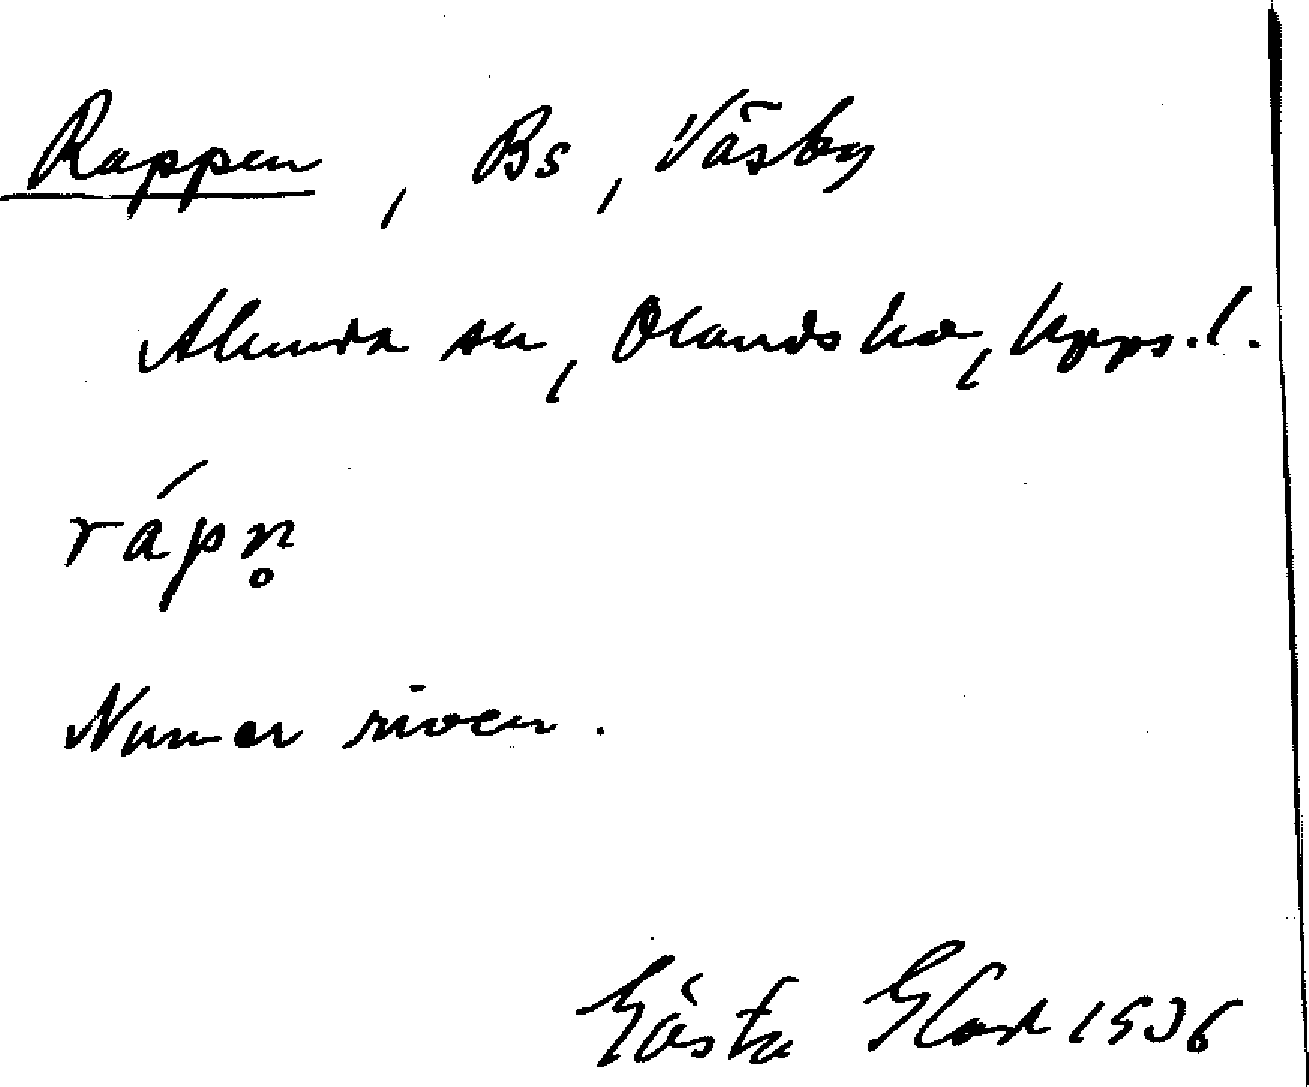 Rappen, Bs, Väsby
Alunda sn, Olands hd, Upps. l.
rápn̥
Numer riven.
Gösta 1936